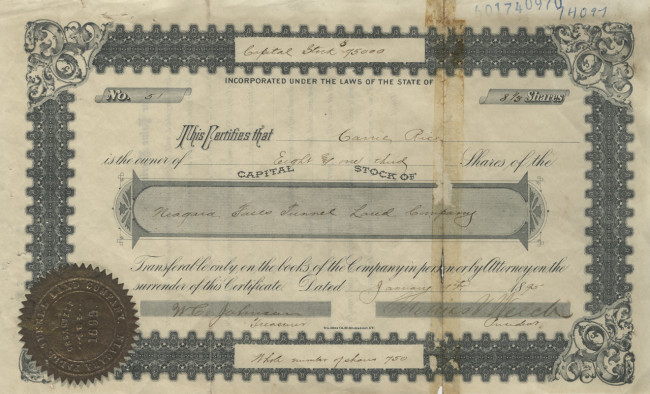 Capital Stock $75000
INCORPORATED UNDER THE LAWS OF THE STATE OF
No. 51 8⅓ Shares
This Certifies that Carrie Rich
is the owner of Eight & one third Shares of the
CAPITAL STOCK OF
Niagara Falls Tunnel Land Company
Transferable only on the books of the Company in person or by Attorney on the
surrender of this Certificate. Dated January 189
W. C. Johnson
Treasurer President
Whole number of shares 750
LAND COMPANY